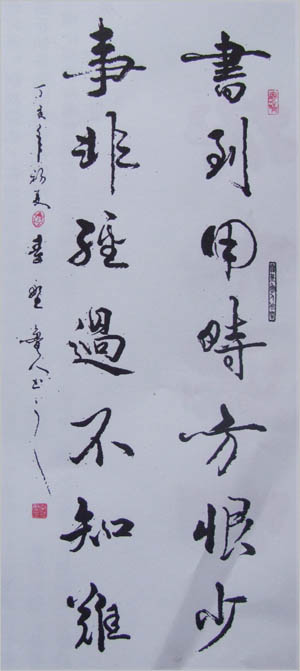 書到用時方恨少
事非經過不知難
丁亥年初夏